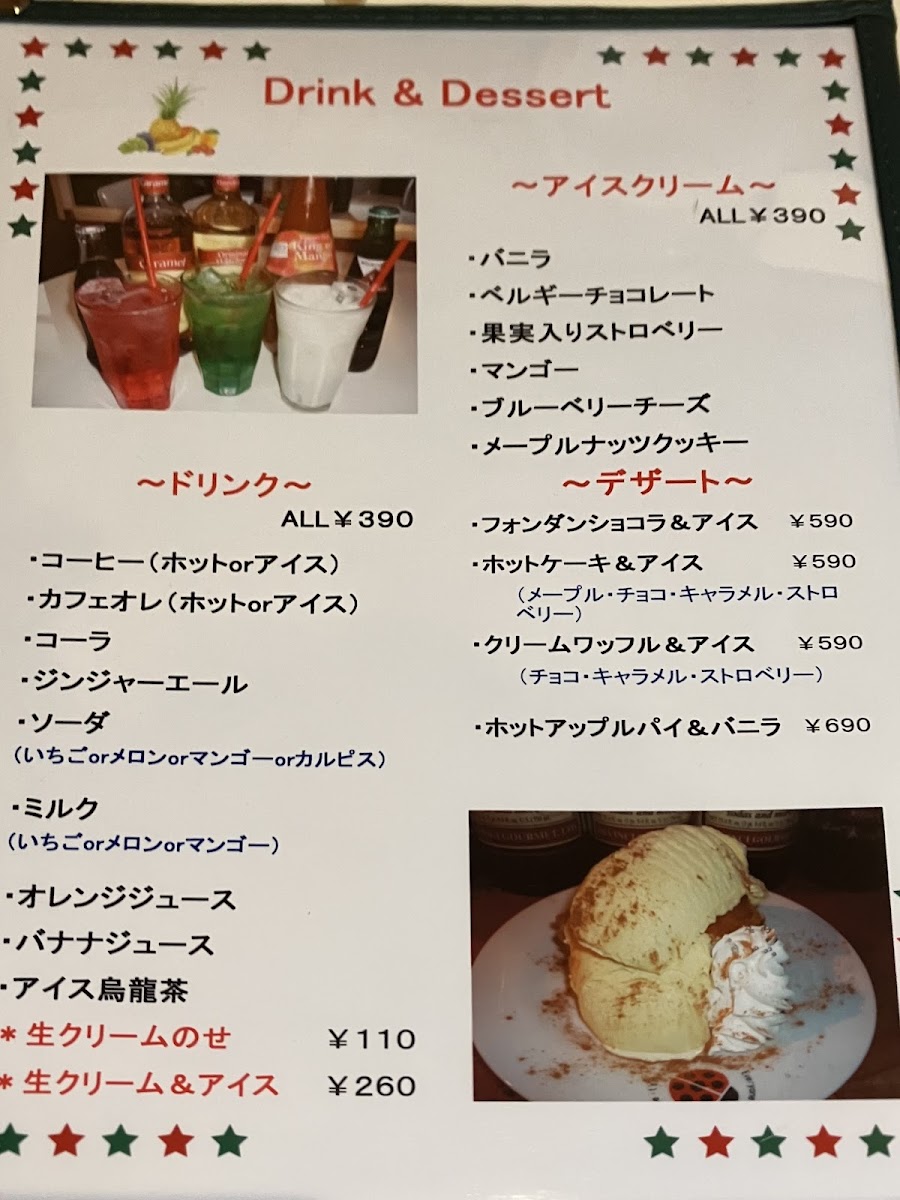 Drink & Dessert
Caramel
King of
Mango
～ドリンク～
ALL￥390
・コーヒー(ホットorアイス)
・カフェオレ(ホットorアイス)
・コーラ
・ジンジャーエール
・ソーダ
(いちごorメロンorマンゴーorカルピス)
・ミルク
(いちごorメロンorマンゴー)
・オレンジジュース
・バナナジュース
・アイス烏龍茶
*生クリームのせ ￥110
*生クリーム＆アイス ￥260
～アイスクリーム～
ALL￥390
・バニラ
・ベルギーチョコレート
・果実入りストロベリー
・マンゴー
・ブルーベリーチーズ
・メープルナッツクッキー
～デザート～
・フォンダンショコラ＆アイス ￥590
・ホットケーキ＆アイス ￥590
(メープル・チョコ・キャラメル・ストロ
ベリー)
・クリームワッフル＆アイス ￥590
(チョコ・キャラメル・ストロベリー)
・ホットアップルパイ＆バニラ ￥690